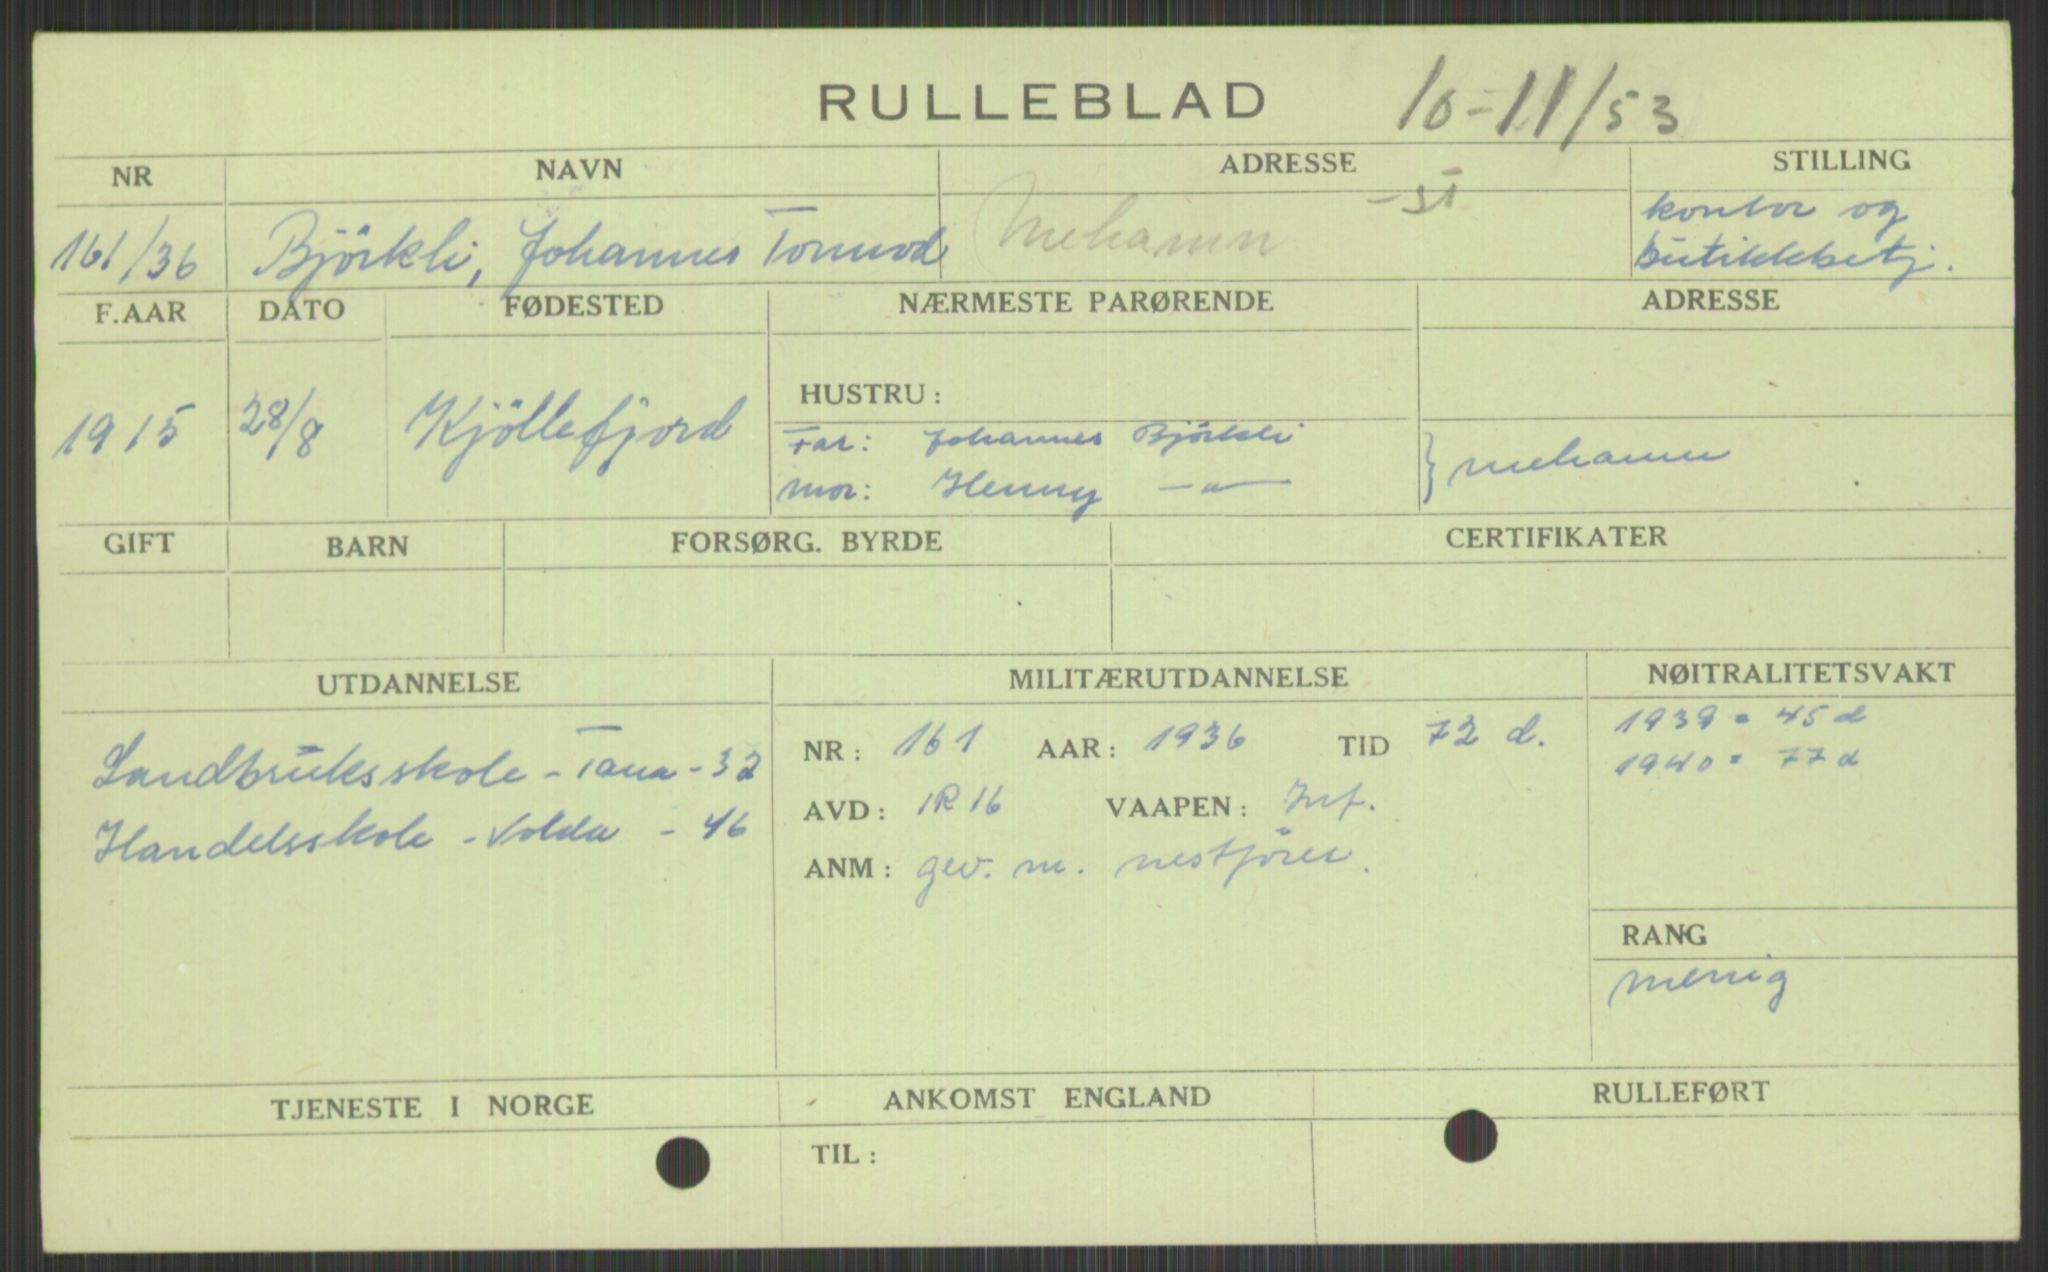 RULLEBLAD 10-11/53
NR NAVN ADRESSE STILLING
161/36 Björkli, Johannes Tormod Mehamn kontor og
butikkbetj.
F.AAR DATO FØDESTED NÆRMESTE PARØRENDE ADRESSE
1915 28/8 Kjöllefjord HUSTRU:
Far: Johannes Björkli } Mehamn
Mor: Henny —"—
GIFT BARN FORSØRG. BYRDE CERTIFIKATER
UTDANNELSE MILITÆRUTDANNELSE NØITRALITETSVAKT
Landbruksskole - Tana - 32 NR: 161 AAR: 1936 TID 72 d. 1939 = 45 d
1940 = 77 d
Handelsskole - Volda - 46 AVD: IR 16 VAAPEN: Inf.
ANM: gev. m. nestförer.
RANG
menig
TJENESTE I NORGE ANKOMST ENGLAND RULLEFØRT
TIL: